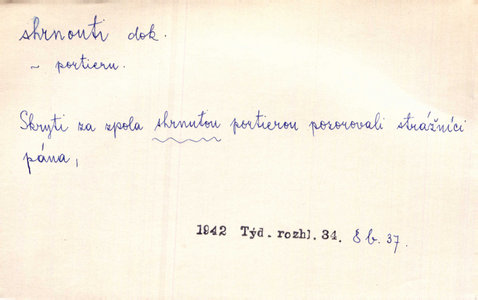 shrnouti dok.
~ portieru.
Skryti za zpola shrnutou portierou pozorovali strážníci
pána,
1942 Týd. rozhl. 34. 8 b. 37.